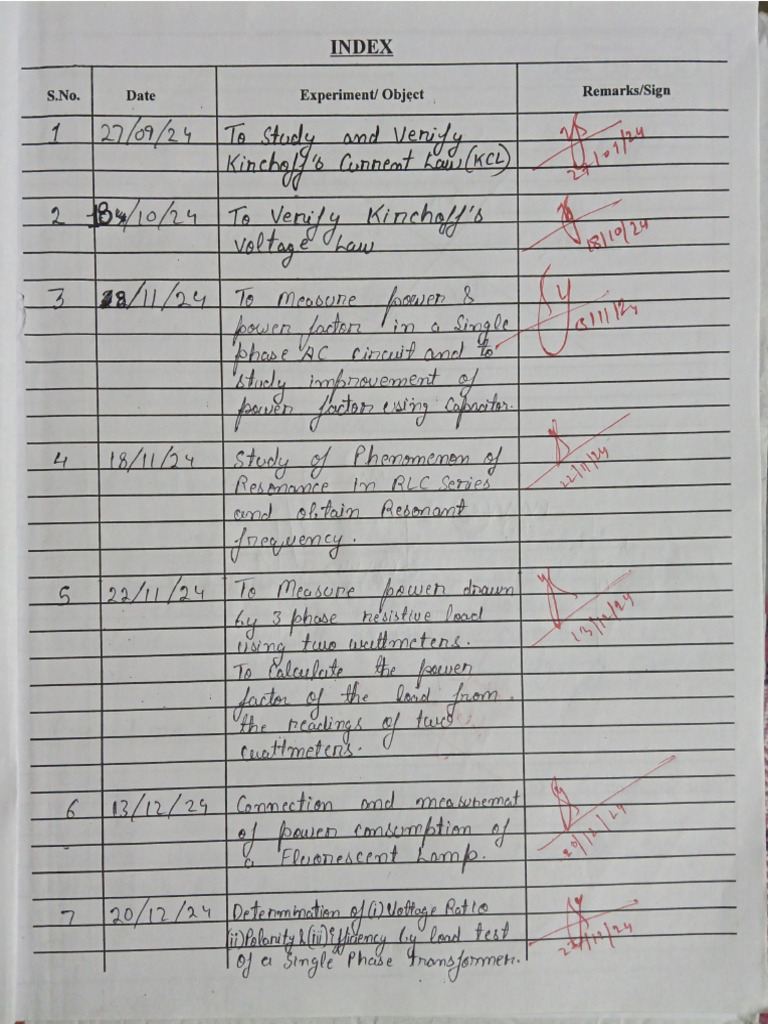 INDEX
S.No. Date Experiment/ Object Remarks/Sign
1 27/09/24 To Study and Verify
Kirchoff's Current Law (KCL)
27/09/24
2 /10/24 To Verify Kirchoff's
Voltage Law
18/10/24
3 /11/24 To Measure power &
power factor in a Single
phase AC circuit and to
study improvement of
power factor using Capacitor.
/11/24
4 18/11/24 Study of Phenomenon of
Resonance in RLC Series
and obtain Resonant
frequency.
22/11/24
5 22/11/24 To Measure power drawn
by 3 phase resistive load
using two wattmeters.
To Calculate the power
factor of the load from
the readings of two
wattmeters.
13/12/24
6 13/12/24 Connection and measuremat
of power consumption of
a Fluorescent Lamp.
20/12/24
7 20/12/24 Determination of (i) Voltage Ratio
(ii) Polarity & (iii) Efficiency by load test
of a Single Phase transformer.
/12/24